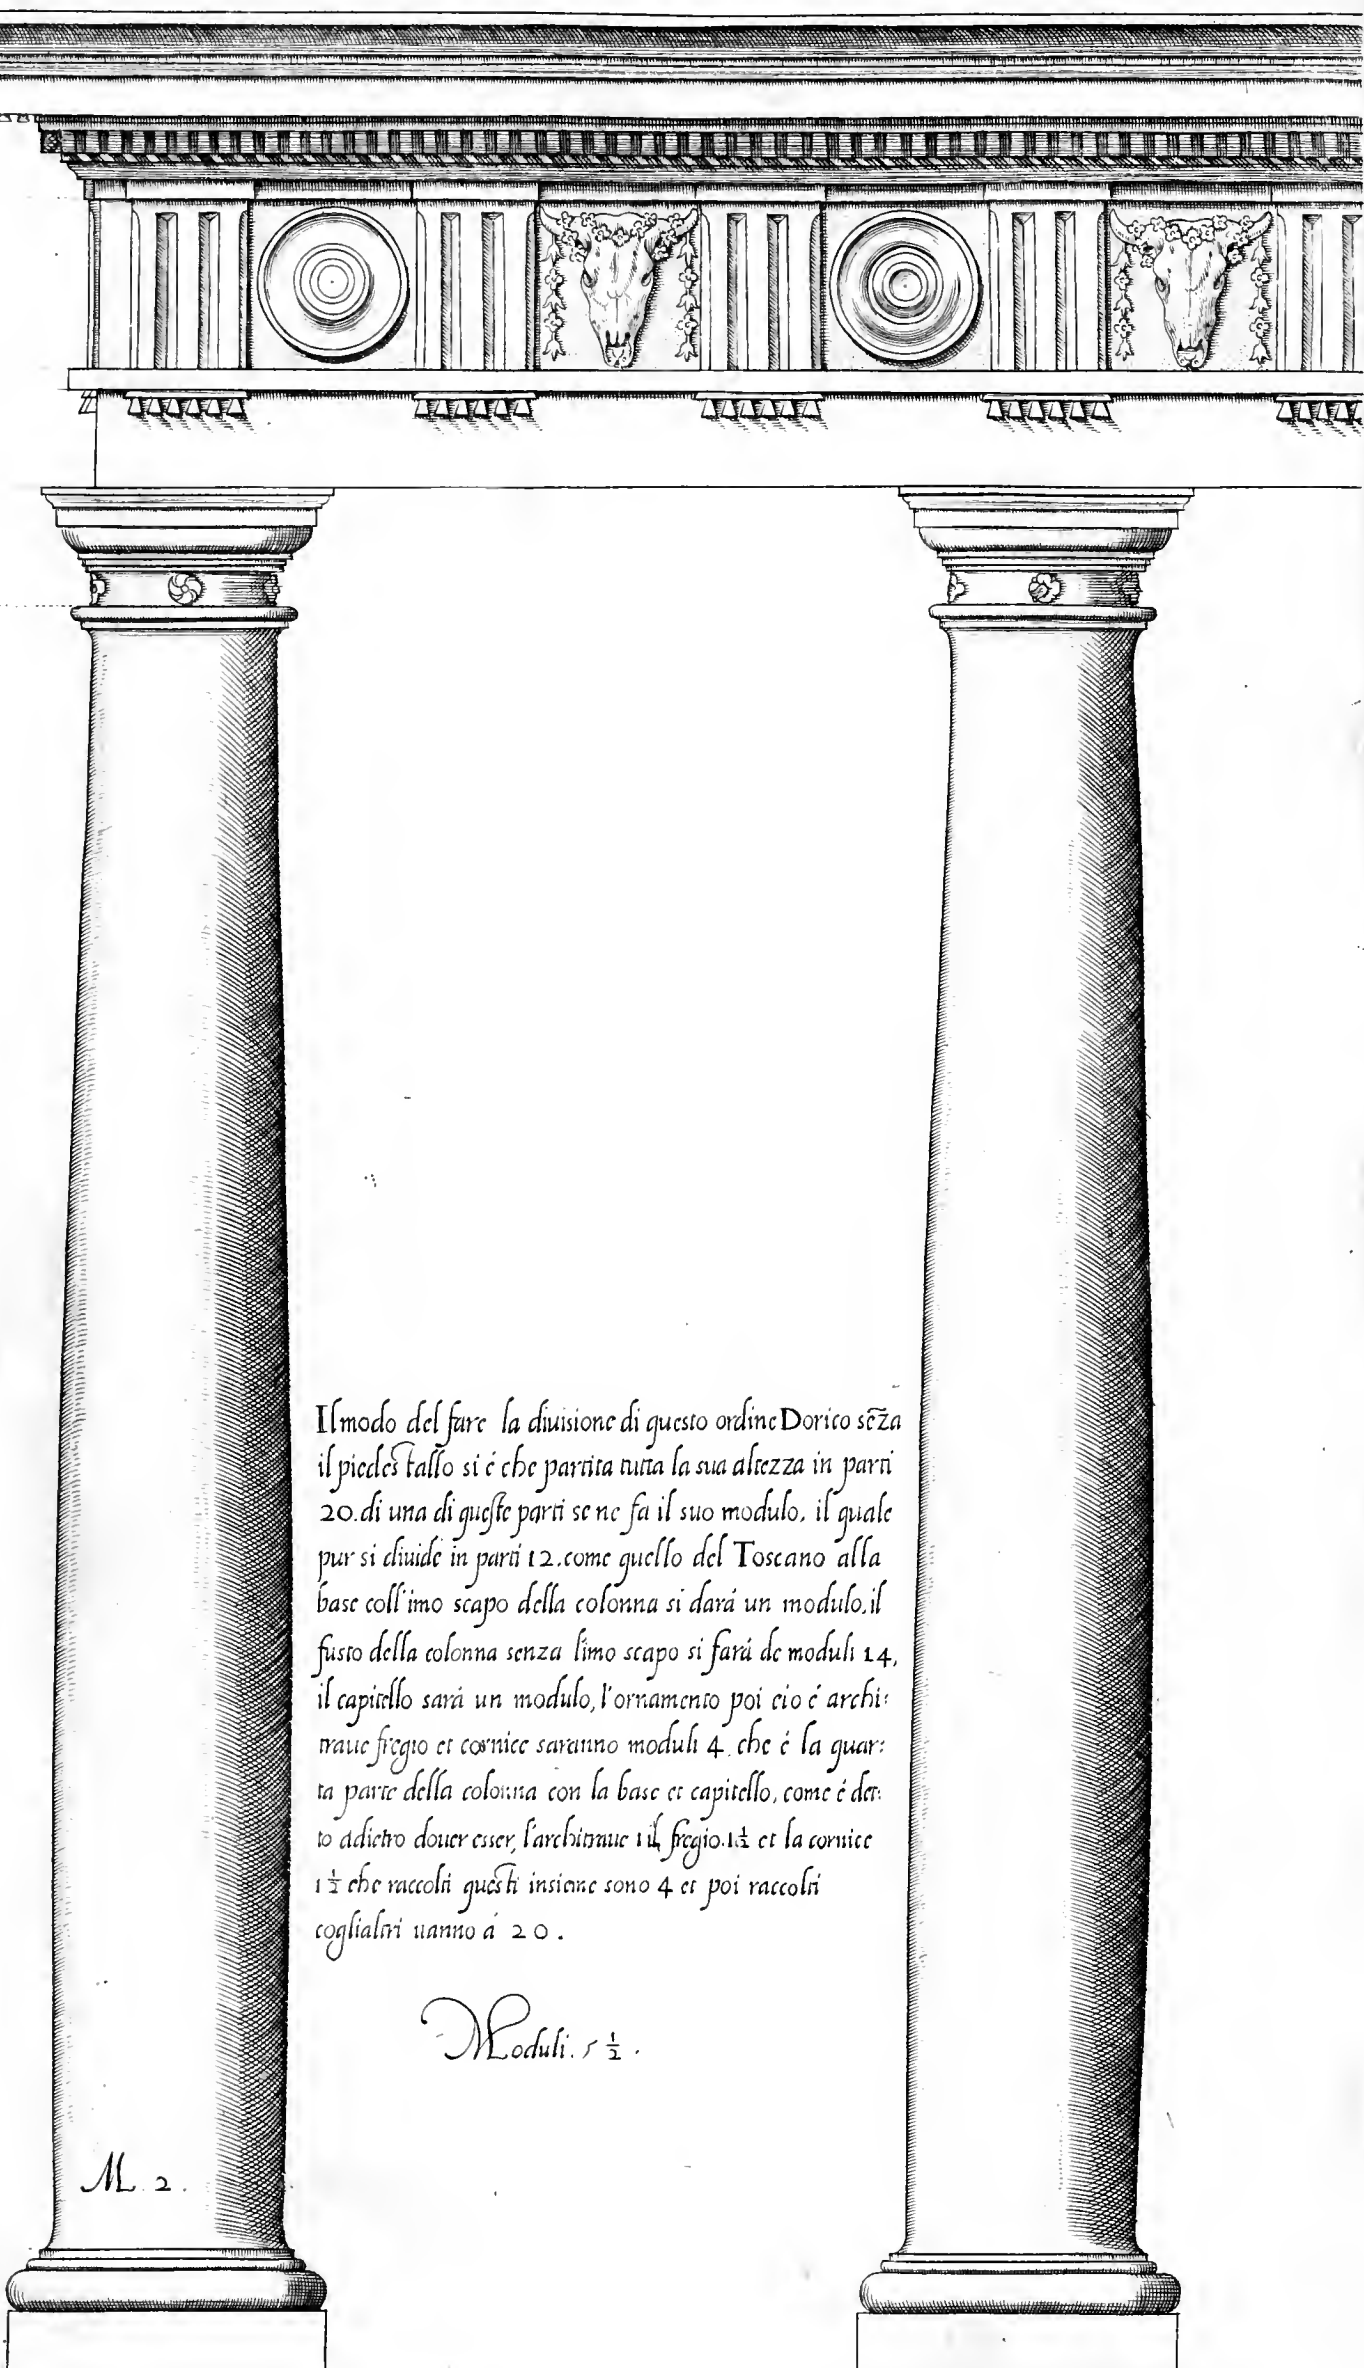 Il modo del fare la diuisione di questo ordine Dorico sēza
il piedestallo si é che partita tutta la sua altezza in parti
20. di una di queste parti se ne fa il suo modulo, il quale
pur si diuide in parti 12. come quello del Toscano alla
base coll'imo scapo della colonna si dará un modulo, il
fusto della colonna senza l'imo scapo si fará de moduli 14,
il capitello sará un modulo, l'ornamento poi cio é archi:
traue fregio et cornice saranno moduli 4, che é la quar:
ta parte della colonna con la base et capitello, come é det:
to adietro douer esser, l'architraue 1 il fregio. 1½ et la cornice
1½ che raccolti questi insieme sono 4 et poi raccolti
coglialtri uanno á 20.
Moduli. 5 ½.
M. 2.